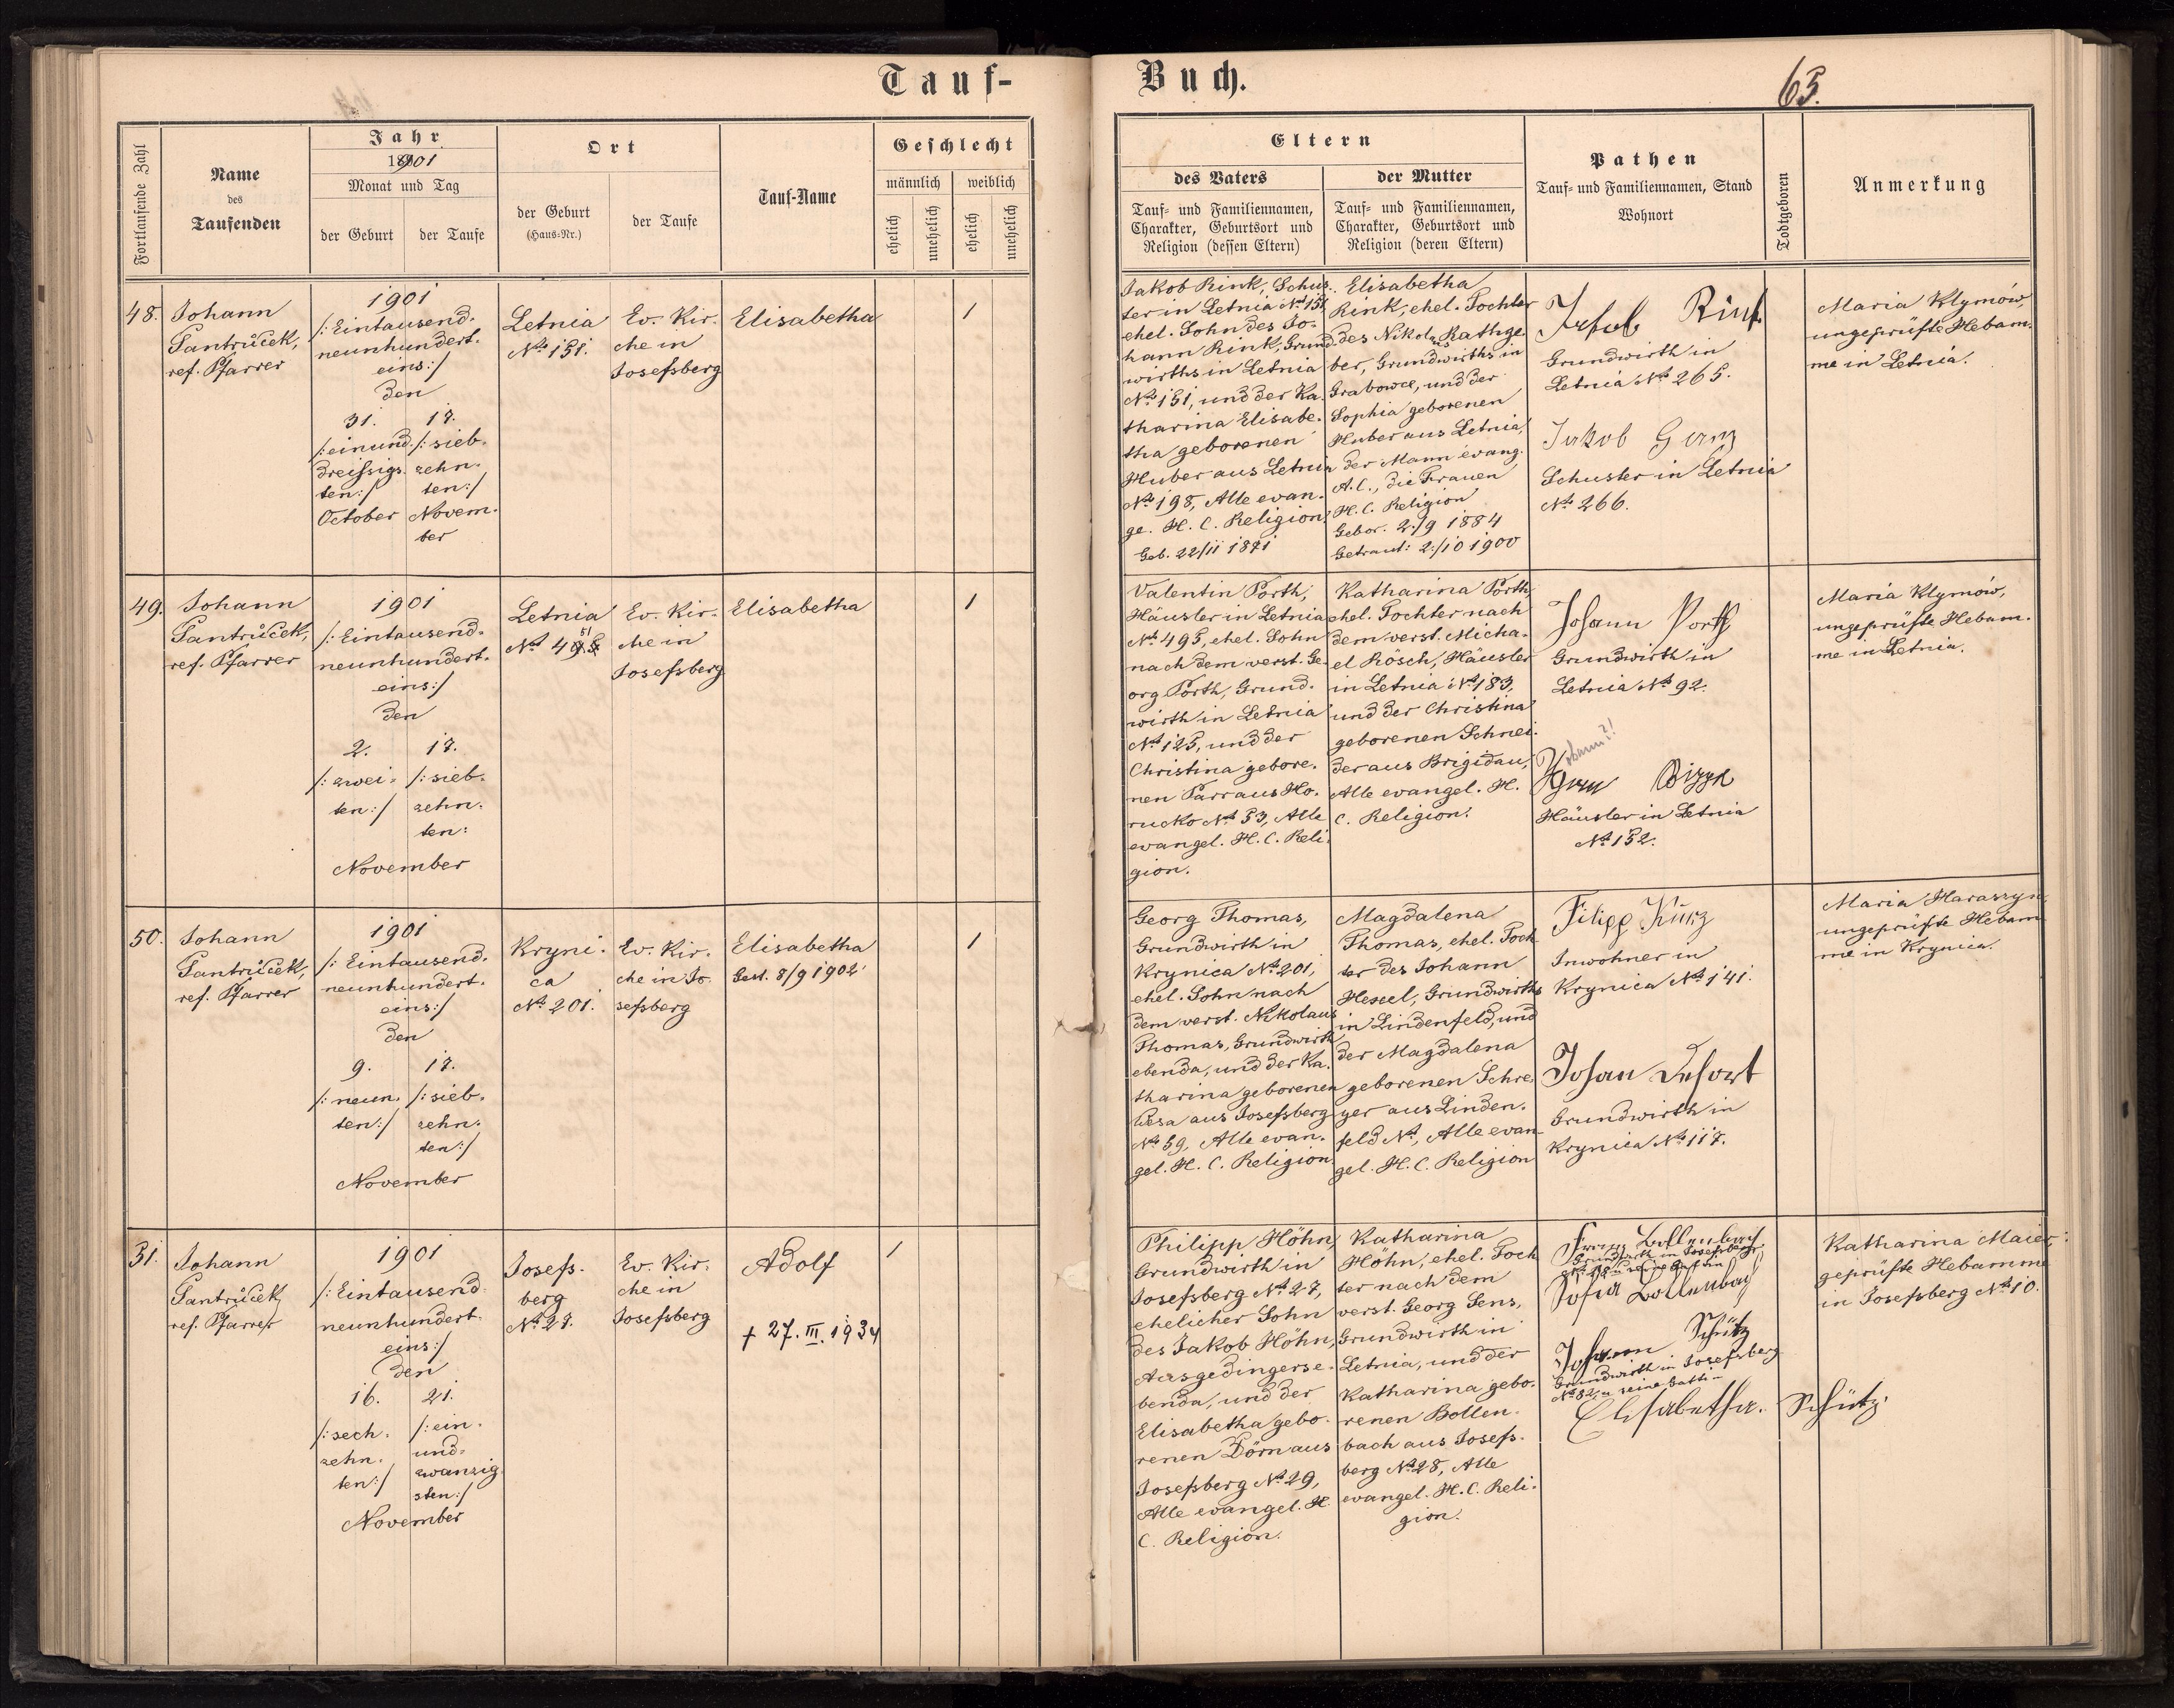 Tauf-
Buch.
65.
Fortlaufende Zahl
Name
des
Taufenden
Jahr
1901
Monat und Tag
der Geburt
der Taufe
Ort
der Geburt
(Haus-Nr.)
der Taufe
Tauf-Name
Geschlecht
männlich
weiblich
ehelich
unehelich
ehelich
unehelich
Eltern
des Vaters
Tauf- und Familiennamen,
Charakter, Geburtsort und
Religion (dessen Eltern)
der Mutter
Tauf- und Familiennamen,
Charakter, Geburtsort und
Religion (deren Eltern)
Pathen
Tauf- und Familiennamen, Stand
Wohnort
Todtgeboren
Anmerkung
48.
Johann
Pantrůček,
ref. Pfarrer
1901
/:Eintausend-
neunhundert-
eins:/
den
31.
/:einund-
dreissigs-
ten:/
October
17.
/:sieb-
zehn-
ten:/
Novem-
ber
Letnia
No 151.
Ev. Kir-
che in
Josefsberg
Elisabetha
1
Jakob Rink, Schus-
ter in Letnia No 151,
ehel. Sohn des Jo-
hann Rink, Grund-
wirths in Letnia
No 151, und der Ka-
tharina Elisabe-
tha geborenen
Huber aus Letnia
No 198, Alle evan-
ge. H. C. Religion.
Geb. 22/11 1871
Elisabetha
Rink, ehel. Tochter
des Nikolaus Rathge-
ber, Grundwirths in
Grabowce, und der
Sophia geborenen
Huber aus Letnia,
der Mann evang.
A. C., die Frauen
H. C. Religion
Gebor. 2./9 1884
Getraut: 2./10 1900
Jakob Rink
Grundwirth in
Letnia No 265.
Jakob Ganz
Schuster in Letnia
No 266.
Maria Klymów,
ungeprüfte Hebam-
me in Letnia.
49.
Johann
Pantrůček,
ref. Pfarrer
1901
/:Eintausend-
neunhundert-
eins:/
den
2.
/:zwei-
ten:/
17.
/:sieb-
zehn-
ten:
November
Letnia
No 495
51
Ev. Kir-
che in
Josefsberg
Elisabetha
1
Valentin Porth,
Häusler in Letnia
No 495, ehel. Sohn
nach dem verst. Ge-
org Porth, Grund-
wirth in Letnia
No 125, und der
Christina gebore-
nen Parr aus Ho-
rucko No 53, Alle
evangel. H. C. Reli-
gion.
Katharina Porth,
ehel. Tochter nach
dem verst. Micha-
el Rösch, Häusler
in Letnia No 183,
und der Christina
geborenen Schnei-
der aus Brigidau,
Alle evangel. H.
C. Religion.
Johann Porth
Grundwirth in
Letnia No 92.
Johann?!
Häusler in Letnia
No 152.
Maria Klymów,
ungeprüfte Hebam-
me in Letnia.
50.
Johann
Pantrůček,
ref. Pfarrer
1901
/:Eintausend-
neunhundert-
eins:/
den
9.
/:neun-
ten:/
17.
/:sieb-
zehn-
ten:/
November
Kryni-
ca
No 201.
Ev. Kir-
che in Jo-
sefsberg
Elisabetha
Gest. 8/9 1902
1
Georg Thomas,
Grundwirth in
Krynica No 201,
ehel. Sohn nach
dem verst. Nikolaus
Thomas, Grundwirth
ebenda, und der Ka-
tharina geborenen
Besa aus Josefsberg
No 59, Alle evan-
gel. H. C. Religion.
Magdalena
Thomas, ehel. Toch-
ter des Johann
Hexel, Grundwirths
in Lindenfeld, und
der Magdalena
geborenen Schre-
yer aus Linden-
feld No, Alle evan-
gel. H. C. Religion
Filipp Kürz
Inwohner in
Krynica No 141.
Johan Desort
Grundwirth in
Krynica No 117.
Maria Haraszyn
ungeprüfte Hebam-
me in Krynica.
51.
Johann
Pantrůček
ref. Pfarrer
1901
/:Eintausend-
neunhundert-
eins:/
den
16.
/:sech-
zehn-
ten:/
21.
/:ein-
und-
zwanzig-
sten:/
November
Josefs-
berg
No 27.
Ev. Kir-
che in
Josefsberg
Adolf
† 27. III. 1934
1
Philipp Höhn,
Grundwirth in
Josefsberg No 27,
ehelicher Sohn
des Jakob Höhn,
Ausgedingers e-
benda, und der
Elisabetha gebo-
renen Dörn aus
Josefsberg No 29,
Alle evangel. H.
C. Religion.
Katharina
Höhn, ehel. Toch-
ter nach dem
verst. Georg Sens,
Grundwirth in
Letnia, und der
Katharina gebo-
renen Bollen-
bach aus Josefs-
berg No 28, Alle
evangel. H. C. Reli-
gion.
Bollenbach
Grundwirth in Josefsberg
No 28 u. seine Gattin
Sofia Bollenbach
Johann Schütz
Grundwirth in Josefsberg
No 82, u seine Gattin
Elisabetha. Schütz.
Katharina Maier,
geprüfte Hebamme
in Josefsberg No 10.